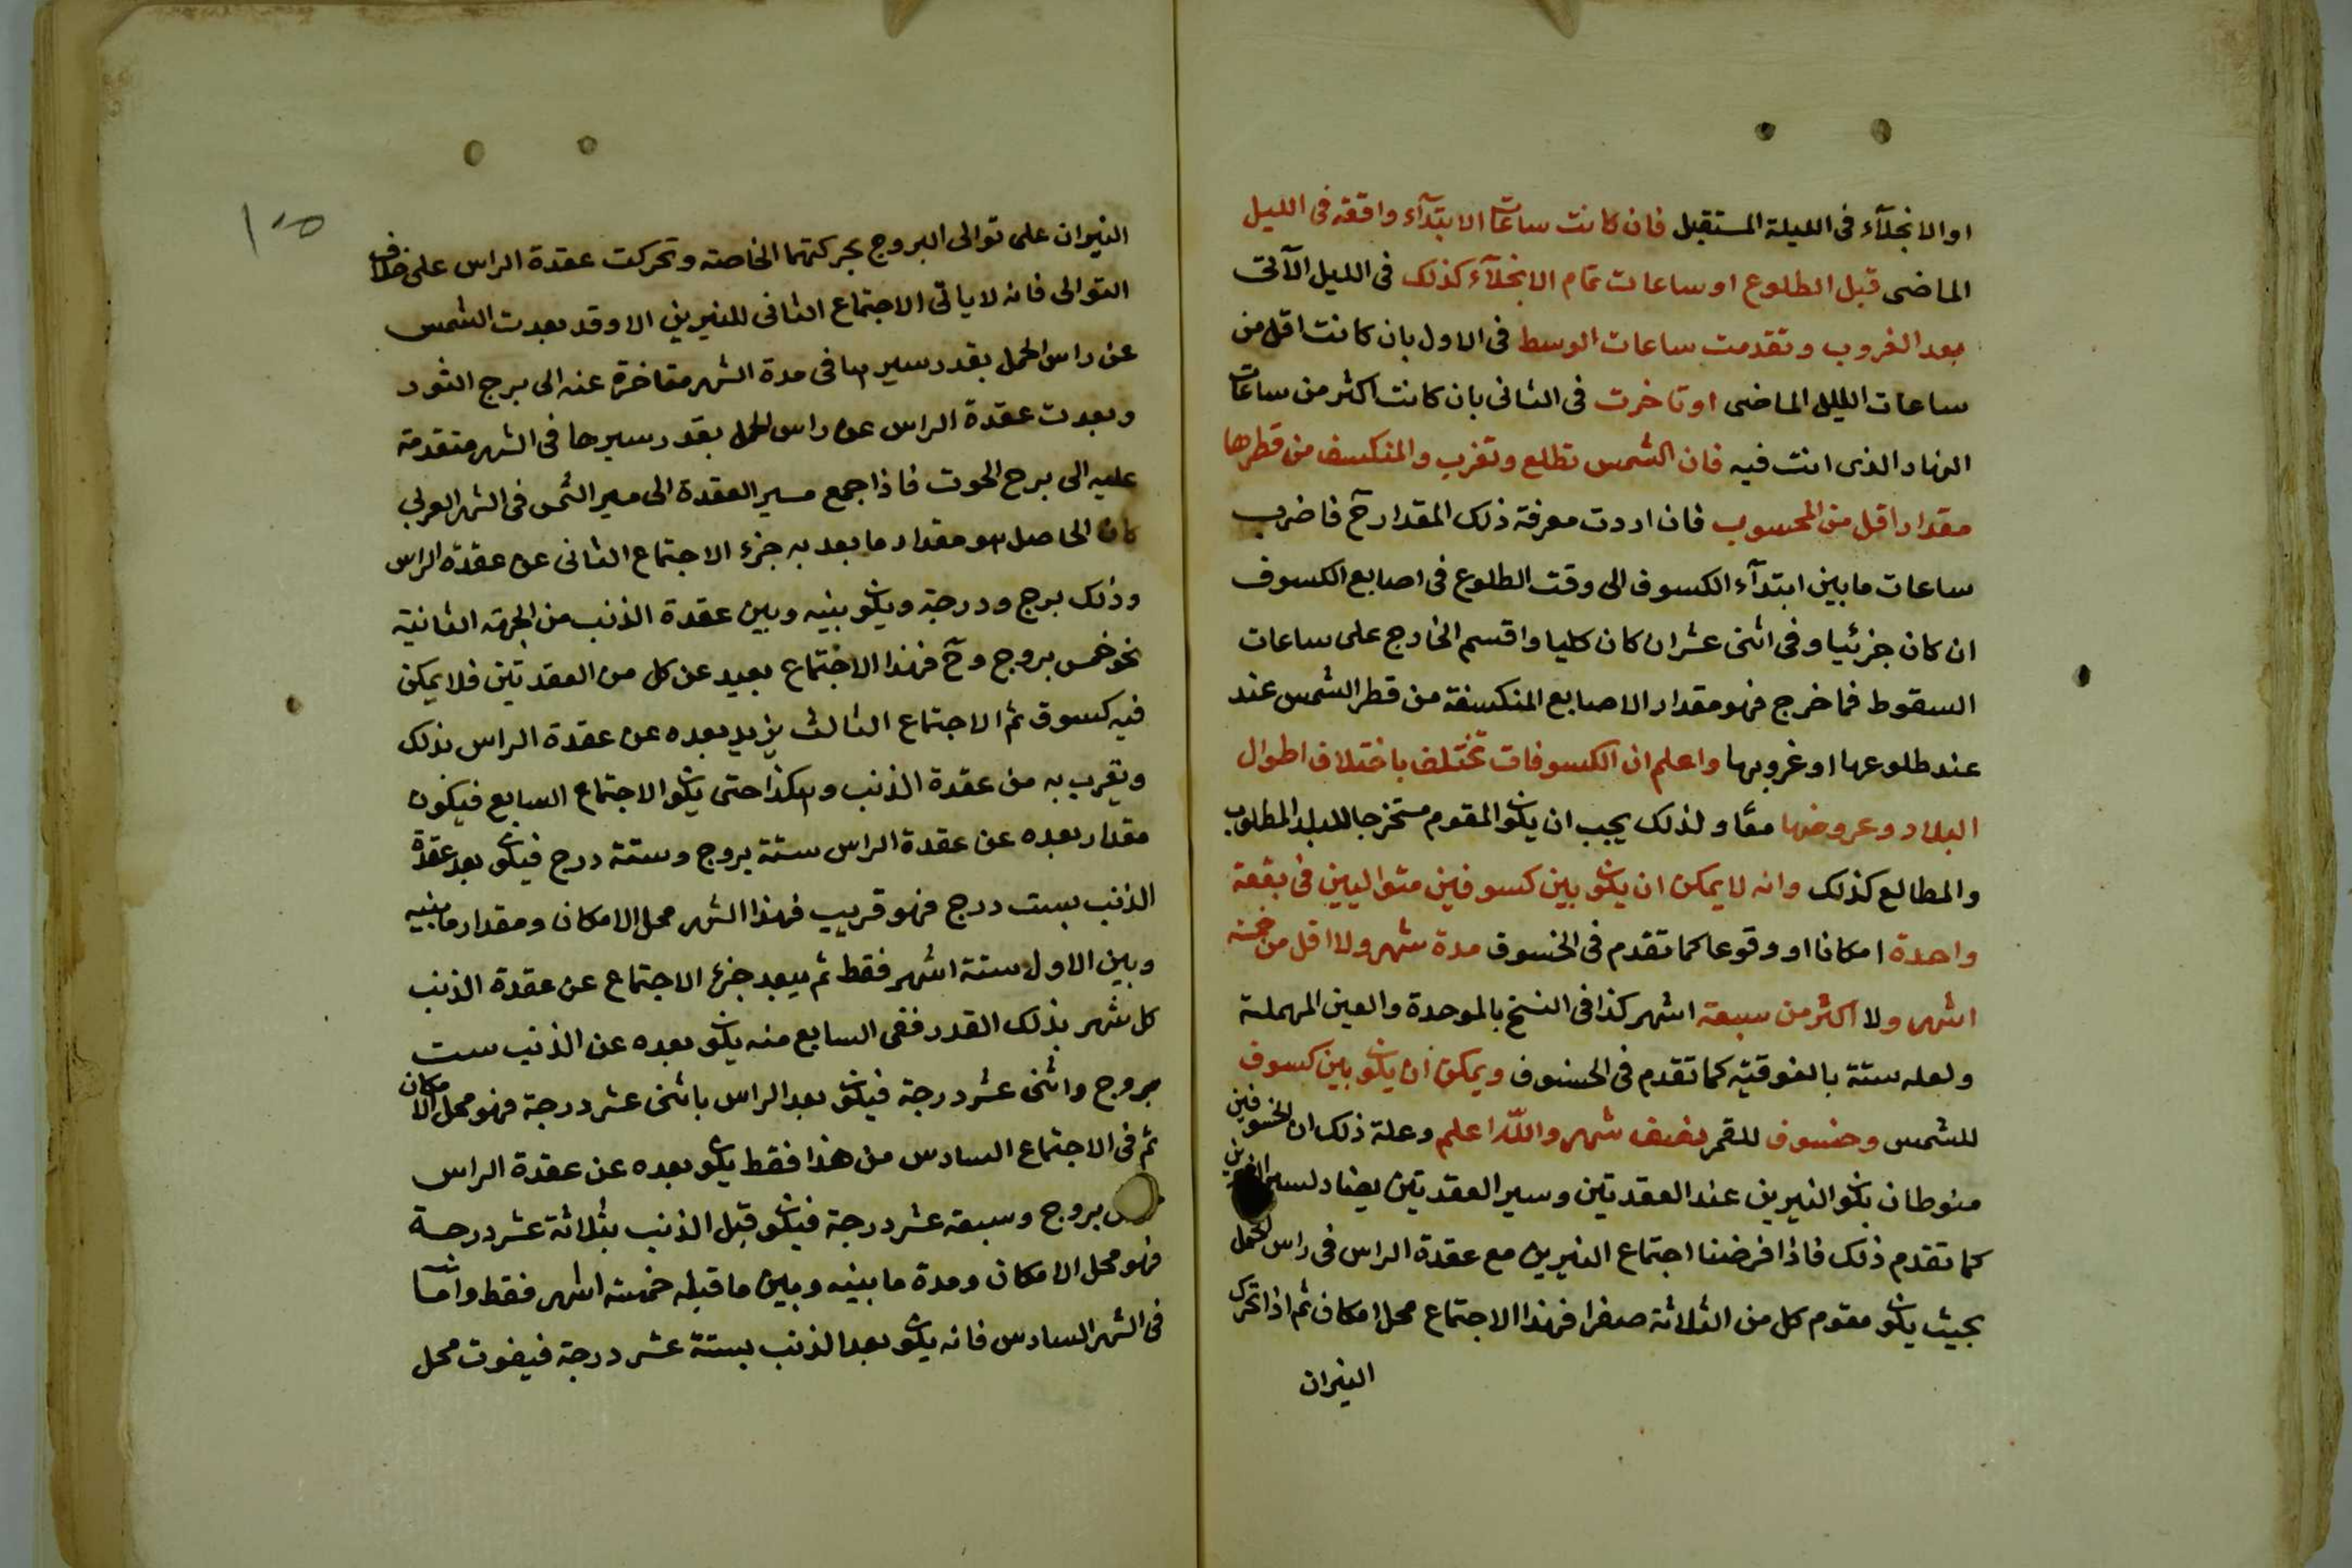 او الانجلآء فى الليلة المستقبل فان كانت ساعات الابتدآء واقعة فى الليل
الماضى قبل الطلوع او ساعات تمام الانجلآء كذلك فى الليل الآتى
بعد الغروب وتقدمت ساعات الوسط فى الاول بان كانت اقل من
ساعات الليل الماضى او تاخرت فى الثانى بان كانت اكثر من ساعات
النهار الذى انت فيه فان الشمس تطلع وتغرب والمنكسف من قطرها
مقدار اقل من المحسوب فان اردت معرفة ذلك المقدار ح فاضرب
ساعات ما بين ابتدآء الكسوف الى وقت الطلوع فى اصابع الكسوف
ان كان جزئيا وفى اثنى عشر ان كان كليا واقسم الخارج على ساعات
السقوط فما خرج فهو مقدار الاصابع المنكسفة من قطر الشمس عند
عند طلوعها او غروبها واعلم ان الكسوفات تختلف باختلاف اطوال
البلاد وعروضها معا ولذلك يجب ان يكون المقوم مستخرجا للبلد المطلوب
والمطالع كذلك وانه لا يمكن ان يكون بين كسوفين متواليين فى بقعة
واحدة امكانا او وقوعا كما تقدم فى الخسوف مدة شهر ولا اقل من خمسة
اشهر ولا اكثر من سبعة اشهر كذا فى النسخ بالموحدة والعين المهملة
ولعله ستة بالفوقية كما تقدم فى الخسوف ويمكن ان يكون بين كسوف
للشمس وخسوف للقمر نصف شهر والله اعلم وعلة ذلك ان الخسوفين
منوطان بكون النيرين عند العقدتين وسير العقدتين يضاد لسير النيرين
كما تقدم ذلك فاذا فرضنا اجتماع النيرين مع عقدة الراس فى راس الحمل
بحيث يكون مقوم كل من الثلاثة صفرا فهذا الاجتماع محل امكان ثم اذا تحرك
النيران
١٥٥
النيران على توالى البروج بحركتهما الخاصة وتحركت عقدة الراس على خلاف
التوالى فانه لا ياتى الاجتماع الثانى للنيرين الا وقد بعدت الشمس
عن راس الحمل بقدر سيرها فى مدة الشهر متاخرة عنه الى برج الثور
وبعدت عقدة الراس عن راس الحمل بقدر سيرها فى الشهر متقدمة
عليه الى برج الحوت فاذا جمع مسير العقدة الى مسير الشمس فى الشهر العربى
كان الحاصل هو مقدار ما بعد به جزء الاجتماع الثانى عن عقدة الراس
وذلك برج ودرجة ويكون بينه وبين عقدة الذنب من الجهة الثانية
نحو خمس بروج وح فهذا الاجتماع بعيد عن كل من العقدتين فلا يمكن
فيه كسوف ثم الاجتماع الثالث يزيد بعده عن عقدة الراس بذلك
ويقرب به من عقدة الذنب وهكذا حتى يكون الاجتماع السابع فيكون
مقدار بعده عن عقدة الراس ستة بروج وستة درج فيكون بعد عقدة
الذنب بست درج فهو قريب فهذا الشهر محل الامكان ومقدار ما بينه
وبين الاول ستة اشهر فقط ثم يبعد جزء الاجتماع عن عقدة الذنب
كل شهر بذلك القدر ففى السابع منه يكون بعده عن الذنب ست
بروج واثنى عشر درجة فيكون بعد الراس باثنى عشر درجة فهو محل الامكان
ثم فى الاجتماع السادس من هذا فقط يكون بعده عن عقدة الراس
بروج وسبعة عشر درجة فيكون قبل الذنب بثلاثة عشر درجة
فهو محل الامكان ومدة ما بينه وبين ما قبله خمسة اشهر فقط واما
فى الشهر السادس فانه يكون بعد الذنب بستة عشر درجة فيفوت محل